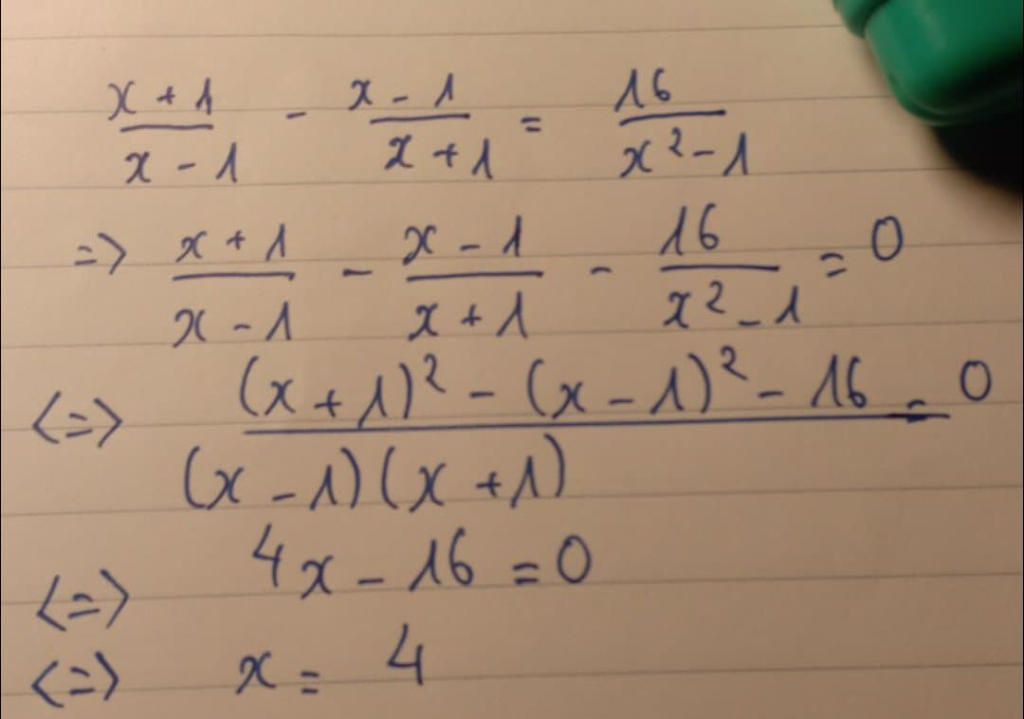 \frac{x+1}{x-1} - \frac{x-1}{x+1} = \frac{16}{x^2-1}
=> \frac{x+1}{x-1} - \frac{x-1}{x+1} - \frac{16}{x^2-1} = 0
<=> \frac{(x+1)^2 - (x-1)^2 - 16}{(x-1)(x+1)} = 0
<=> 4x - 16 = 0
<=> x = 4